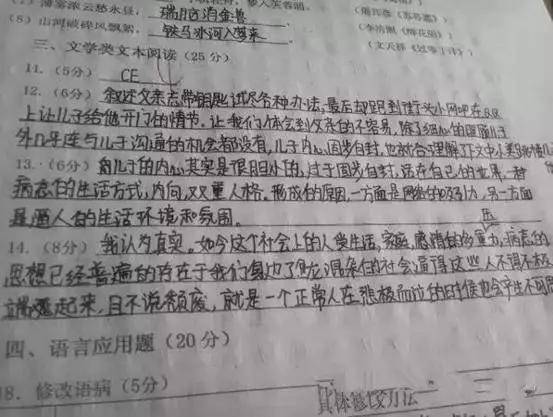 (7) 薄雾浓云愁永昼,瑞脑消金兽 (李清照《醉花阴》)
(8) 山河破碎风飘絮, 铁马冰河入梦来 (文天祥《过零丁洋》)
三、文学类文本阅读(25分)
11.(5分) CE
12.(6分) 叙述父亲忘带钥匙试尽各种办法,最后却跑到街头小网吧在QQ
上让儿子给他开门的情节,让我们体会到父亲的不容易,除了细心的照顾儿子
外几乎连与儿子沟通的机会都没有,儿子内心固步自封,也就合理解了下文中小美
13.(6分) 的儿子的内心其实是很胆小的,过于固步自封,活在自己的世界,一种
病态的生活方式,内向,双重人格。形成的原因,一方面是网络的吸引力,另一方面
是逼人的生活环境和氛围。
14.(8分) 我认为真实。如今这个社会上的人受生活,家庭,感情的多重,病态的
思想已经普遍的存在于我们身边了,混杂的社会逼得这些人不得不极
端起来,且不说颓废,就是一个正常人在
四、语言应用题(20分)
18.修改语病(5分)
具体修改方法
一
二